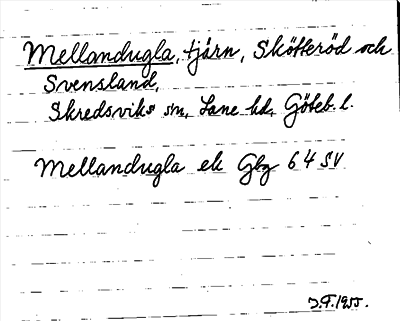 Mellandugla, tjärn, Skötteröd och
Svensland,
Skredsviks sn, Lane hd, Göteb. l.
Mellandugla ek Gbg 64 SV
J.F. 1955.